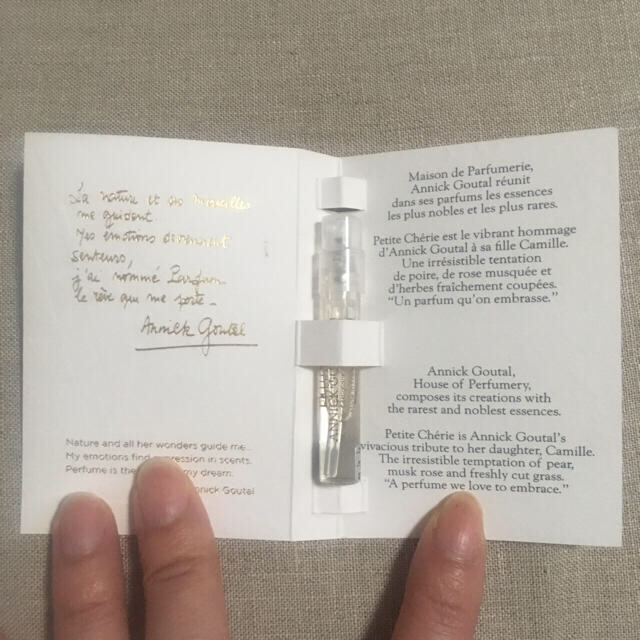 La nature et ses merveilles
me guident.
Mes émotions deviennent
senteurs,
j'ai nommé Parfum
le rêve qui me porte -
Annick Goutal
Nature and all her wonders guide me...
My emotions find expression in scents.
Perfume is the my dream.
Annick Goutal
ANNICK
Maison de Parfumerie,
Annick Goutal réunit
dans ses parfums les essences
les plus nobles et les plus rares.
Petite Chérie est le vibrant hommage
d'Annick Goutal à sa fille Camille.
Une irrésistible tentation
de poire, de rose musquée et
d'herbes fraîchement coupées.
“Un parfum qu'on embrasse.”
Annick Goutal,
House of Perfumery,
composes its creations with
the rarest and noblest essences.
Petite Chérie is Annick Goutal's
vivacious tribute to her daughter, Camille.
The irresistible temptation of pear,
musk rose and freshly cut grass.
“A perfume we love to embrace.”